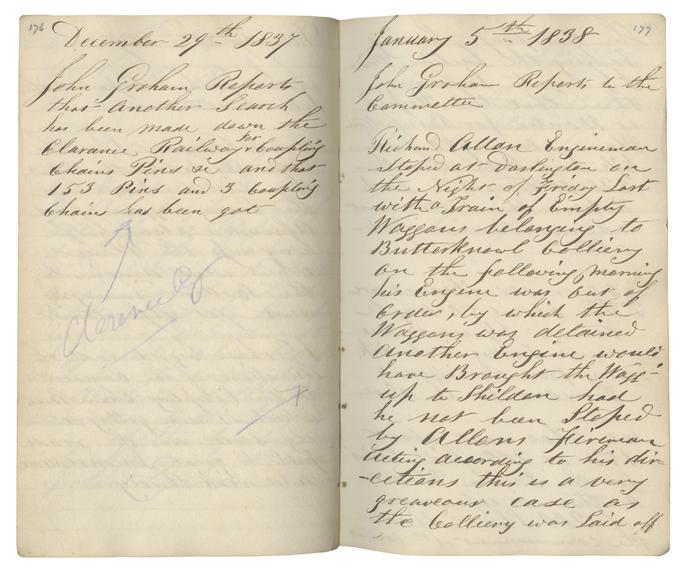 176
December 29th 1837
John Graham Reports
that Another Search
has been made down the
Clarance Railway for Coupling
Chains Pins &c and that
153 Pins and 3 Coupling
Chains has been got
Clarence Ry
177
January 5th 1838
John Graham Reports to the
Committee
Richard Allan Engineman
stoped at Darlington on
the Night of Friday Last
with a Train of Empty
Waggons belonging to
Butterknowl Colliery
on the following morning
his Engine was out of
Order, by which the
Waggons was detained
Another Engine would
have Brought the Waggs
up to Shildon had
he not been Stoped
by Allans Fireman
Acting according to his dir-
-ections this is a very
greaveous case as
the Colliery was Laid off